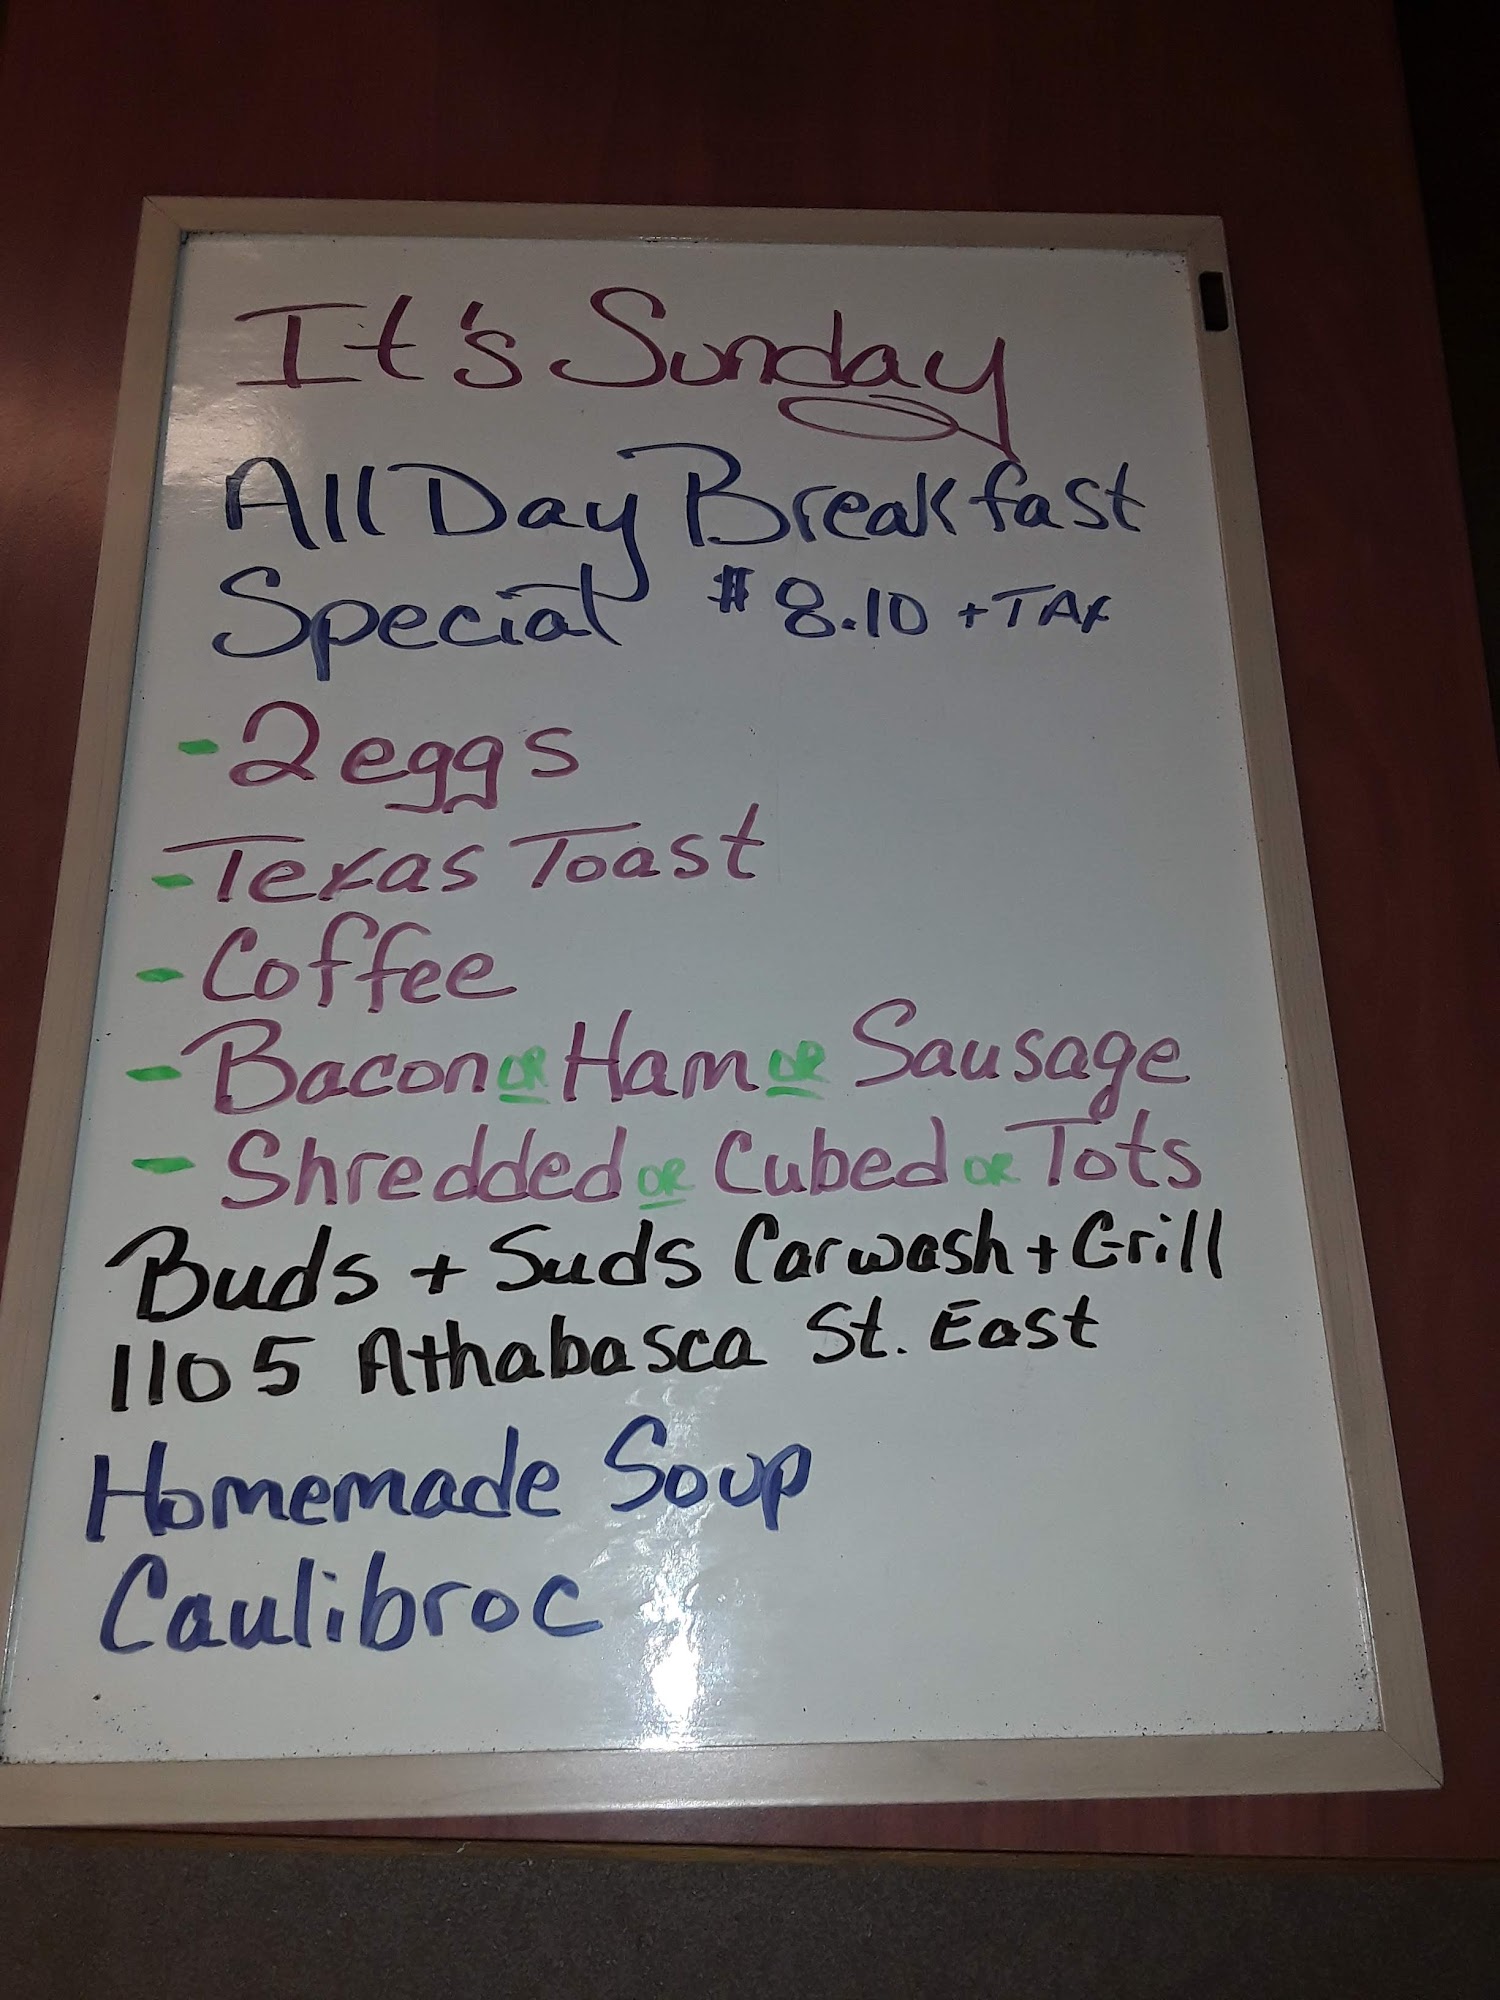 It's Sunday
All Day Breakfast
Special $8.10 + TAX
- 2 eggs
- Texas Toast
- Coffee
- Bacon OR Ham OR Sausage
- Shredded OR Cubed OR Tots
Buds + Suds Carwash + Grill
1105 Athabasca St. East
Homemade Soup
Caulibroc